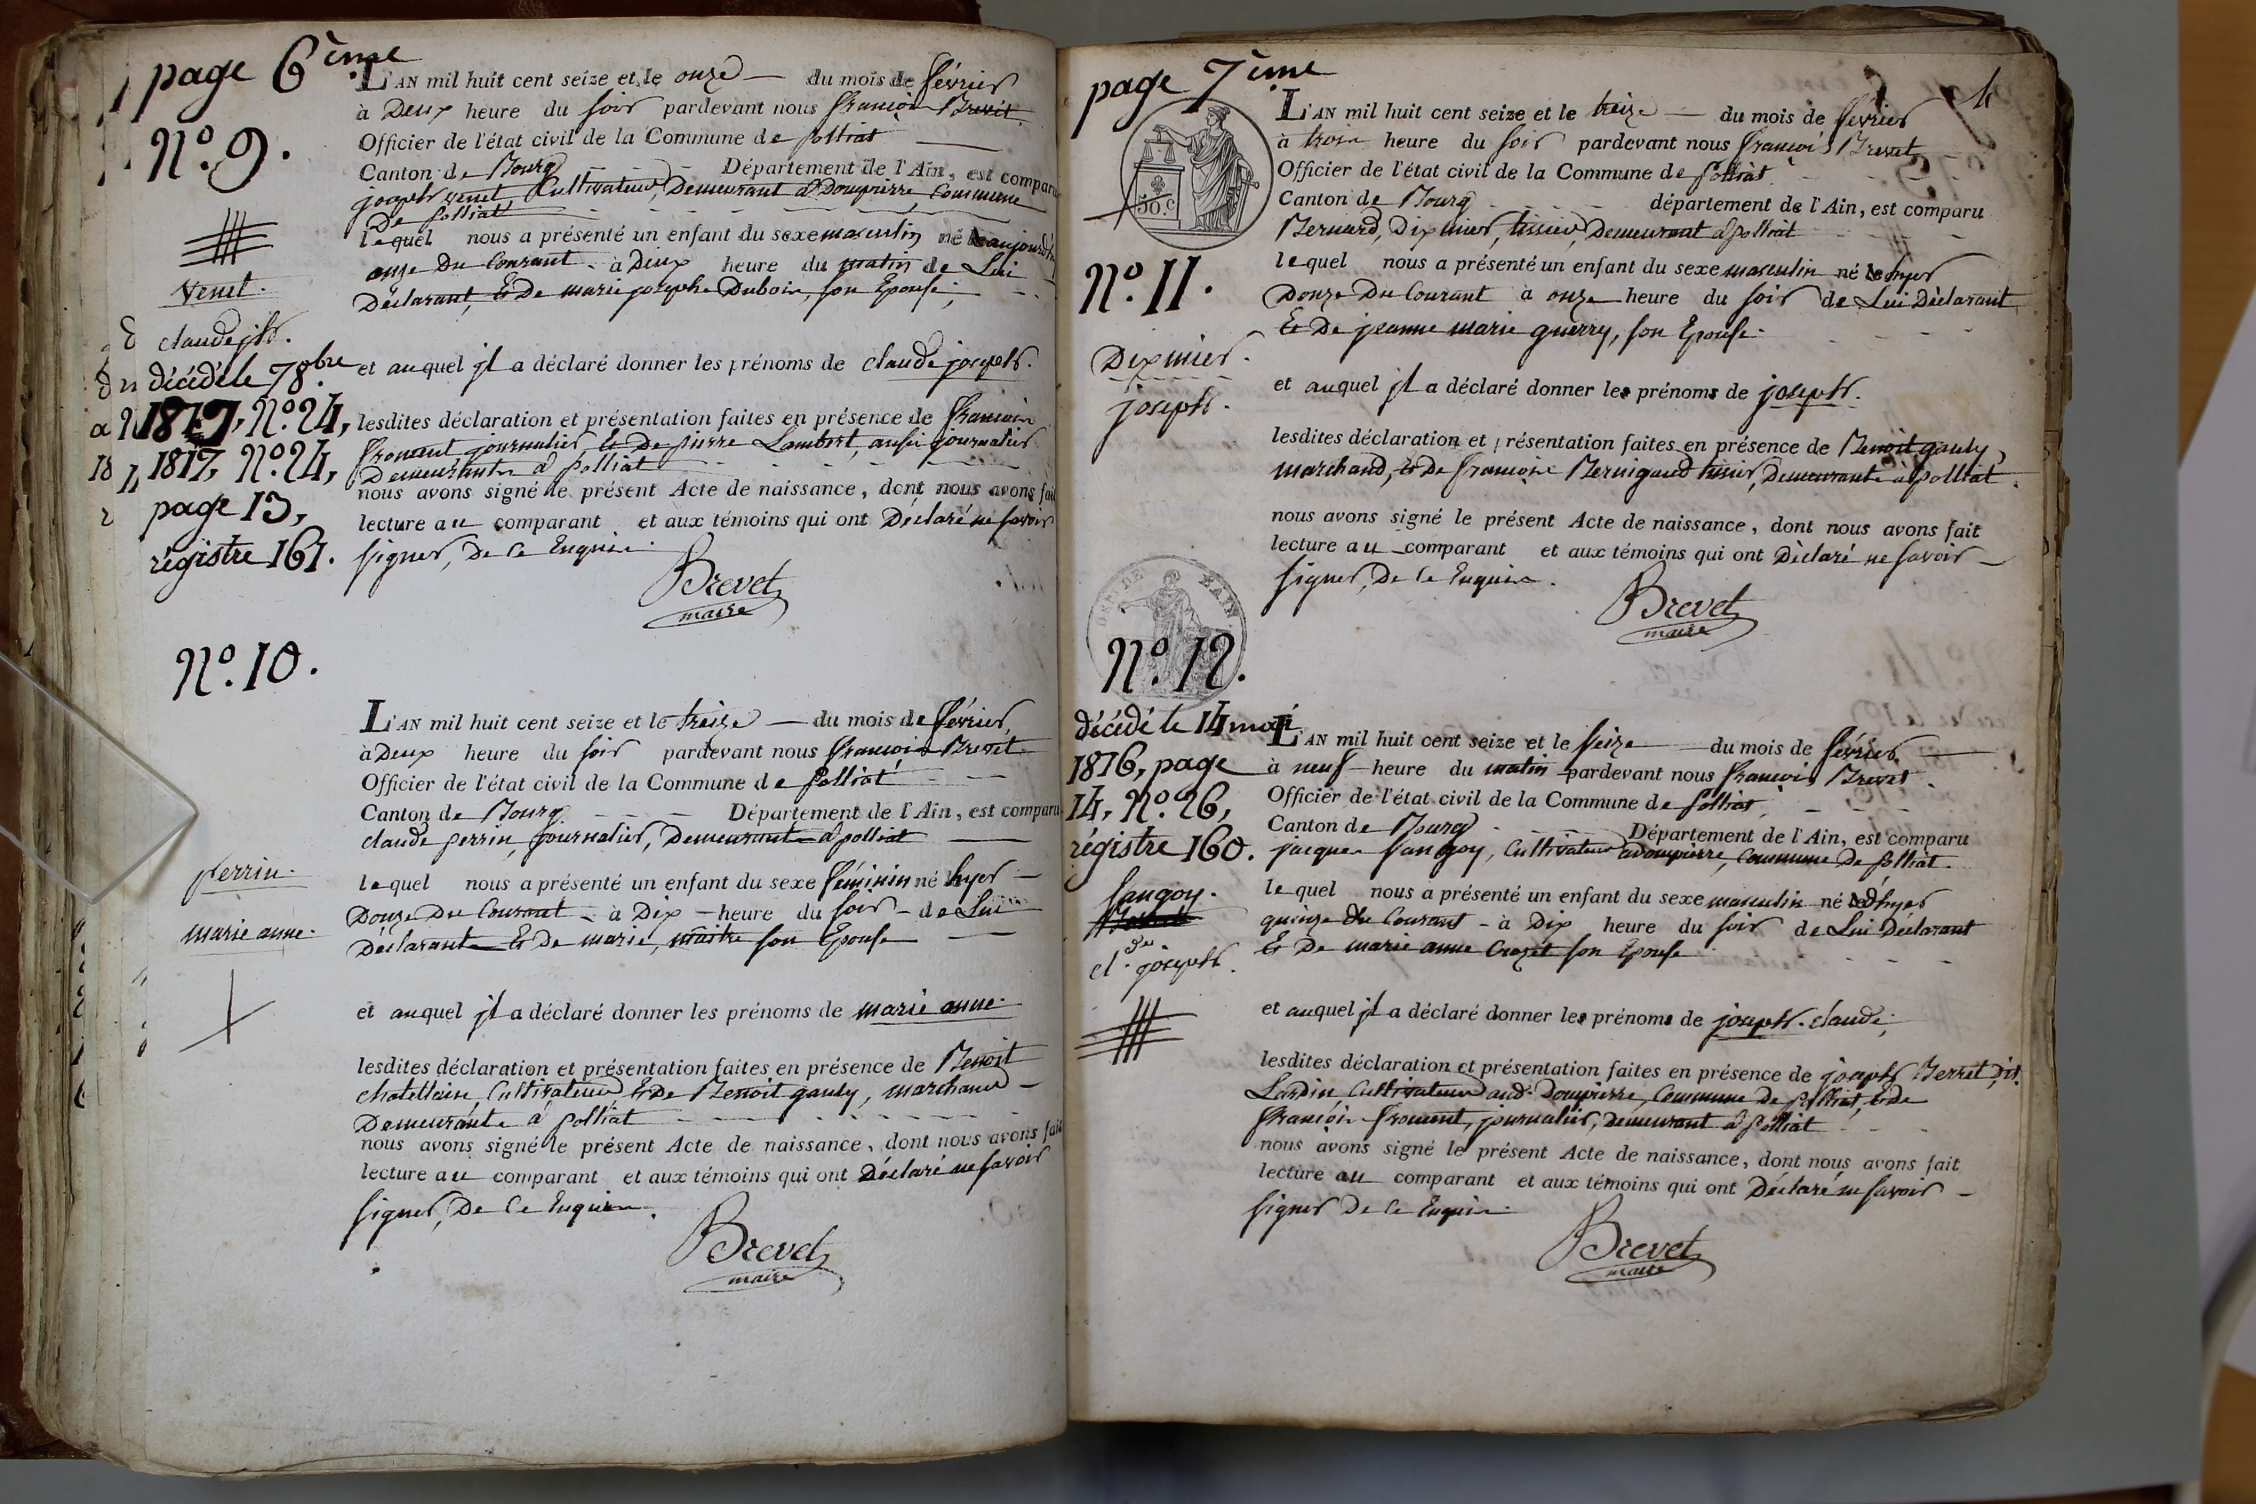 page 6ème
N.º 9.
Venet.
claude jph.
décédé le 7 8bre
1817, N.º 24,
1817, N.º 24,
page 13,
régistre 161.
L'AN mil huit cent seize et le onze du mois de février
à Deux heure du soir pardevant nous françois Brevet
Officier de l'état civil de la Commune de polliat
Canton de Bourg Département de l'Ain, est comparu
joseph venet Cultivateur, Demeurant à Dompierre, Commune
De polliat
lequel nous a présenté un enfant du sexe masculin né aujourd'hui
onze Du Courant à Deux heure du matin de Lui
Déclarant, Et De marie josephe Dubois, son Epouse;
et auquel jl a déclaré donner les prénoms de claude joseph.
lesdites déclaration et présentation faites en présence de françois
fromant journalier et De pierre Lambert, aussi journalier
Demeurants à polliat
nous avons signé le présent Acte de naissance, dont nous avons fait
lecture au comparant et aux témoins qui ont Déclaré ne savoir
signer, De ce Enquis.
Brevet
maire
N.º 10.
perrin.
marie anne.
L'AN mil huit cent seize et le treize du mois de février,
à Deux heure du soir pardevant nous françois Brevet
Officier de l'état civil de la Commune de polliat
Canton de Bourg Département de l'Ain, est comparu
claude perrin, journalier, Demeurant à polliat
lequel nous a présenté un enfant du sexe féminin né hyer
Douze Du Courant à Dix heure du soir de Lui
Déclarant Et De marie, maitre son Epouse
et auquel jl a déclaré donner les prénoms de marie anne.
lesdites déclaration et présentation faites en présence de Benoit
chatellain, Cultivateur Et De Benoit gauly, marchand
Demeurants à polliat
nous avons signé le présent Acte de naissance, dont nous avons fait
lecture au comparant et aux témoins qui ont Déclaré ne savoir
signer, De ce Enquis.
Brevet
maire
page 7ème
4
50.c
N.º 11.
Dixmier.
joseph.
L'AN mil huit cent seize et le treize du mois de février
à trois heure du soir pardevant nous françois Brevet
Officier de l'état civil de la Commune de polliat
Canton de Bourg département de l'Ain, est comparu
Bernard, Dixmier, tissier, Demeurant à polliat
lequel nous a présenté un enfant du sexe masculin né hyer
Douze Du Courant à onze heure du soir de Lui Déclarant
Et De jeanne marie guerry, son Epouse.
et auquel jl a déclaré donner les prénoms de joseph.
lesdites déclaration et présentation faites en présence de Benoit gauly,
marchand, et De françois Bernigaud tissier, Demeurants à polliat.
nous avons signé le présent Acte de naissance, dont nous avons fait
lecture au comparant et aux témoins qui ont Déclaré ne savoir
signer, De ce Enquis.
Brevet
maire
DEPT DE L'AIN
N.º 12.
décédé le 14 mai
1876, page
14, N.º 26,
régistre 160.
sangoy.
cl.de joseph.
L'AN mil huit cent seize et le seize du mois de février
à neuf heure du matin pardevant nous françois Brevet
Officier de l'état civil de la Commune de polliat
Canton de Bourg Département de l'Ain, est comparu
jacques sangoy, Cultivateur à dompierre, Commune De polliat
lequel nous a présenté un enfant du sexe masculin né d'hyer
quinze du Courant à Dix heure du soir de Lui Déclarant
Et De marie anne Crozet son Epouse
et auquel jl a déclaré donner les prénoms de joseph. claude;
lesdites déclaration et présentation faites en présence de joseph Berret, dit.
Lardin Cultivateur aud. Dompierre, Commune De polliat, et de
françois froment, journalier, Demeurant à polliat
nous avons signé le présent Acte de naissance, dont nous avons fait
lecture au comparant et aux témoins qui ont Déclaré ne savoir
signer De ce Enquis.
Brevet
maire